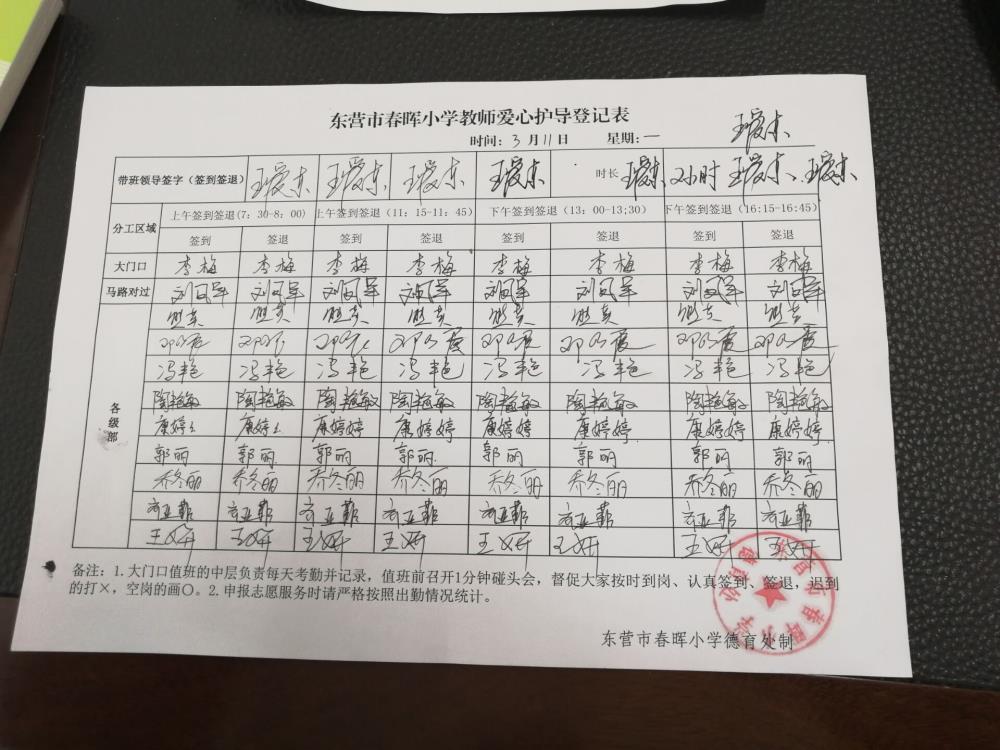 东营市春晖小学教师爱心护导登记表
时间：3月11日 星期：一 王爱东
带班领导签字（签到签退） 王爱东 王爱东 王爱东 王爱东 时长 王爱东 2小时 王爱东、王爱东
分工区域 上午签到签退(7：30-8：00) 上午签到签退（11：15-11：45） 下午签到签退（13：00-13;30） 下午签到签退（16:15-16:45）
签到 签退 签到 签退 签到 签退 签到 签退
大门口 李梅 李梅 李梅 李梅 李梅 李梅 李梅 李梅
马路对过 刘凤军 刘凤军 刘凤军 刘凤军 刘凤军 刘凤军 刘凤军 刘凤军
各级部
冯艳 冯艳 冯艳 冯艳 冯艳 冯艳 冯艳 冯艳
陶艳敏 陶艳敏 陶艳敏 陶艳敏 陶艳敏 陶艳敏 陶艳敏 陶艳敏
康婷婷 康婷婷 康婷婷 康婷婷 康婷婷 康婷婷 康婷婷 康婷婷
郭丽 郭丽 郭丽 郭丽 郭丽 郭丽 郭丽 郭丽
乔冬丽 乔冬丽 乔冬丽 乔冬丽 乔冬丽 乔冬丽 乔冬丽 乔冬丽
亚菲 亚菲 亚菲 亚菲 亚菲 亚菲 亚菲 亚菲
王妍 王妍 王妍 王妍 王妍 王妍 王妍 王妍
备注：1.大门口值班的中层负责每天考勤并记录，值班前召开1分钟碰头会，督促大家按时到岗、认真签到、签退，迟到
的打×，空岗的画〇。2.申报志愿服务时请严格按照出勤情况统计。
东营市春晖小学德育处制